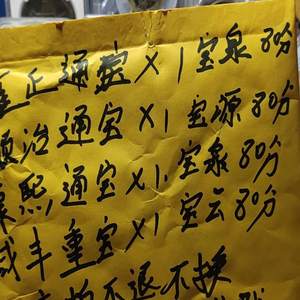 雍正通宝X1宝泉80分
顺治通宝X1宝源80分
康熙通宝X1.宝泉80分
咸丰重宝X1宝云80分
不退不换